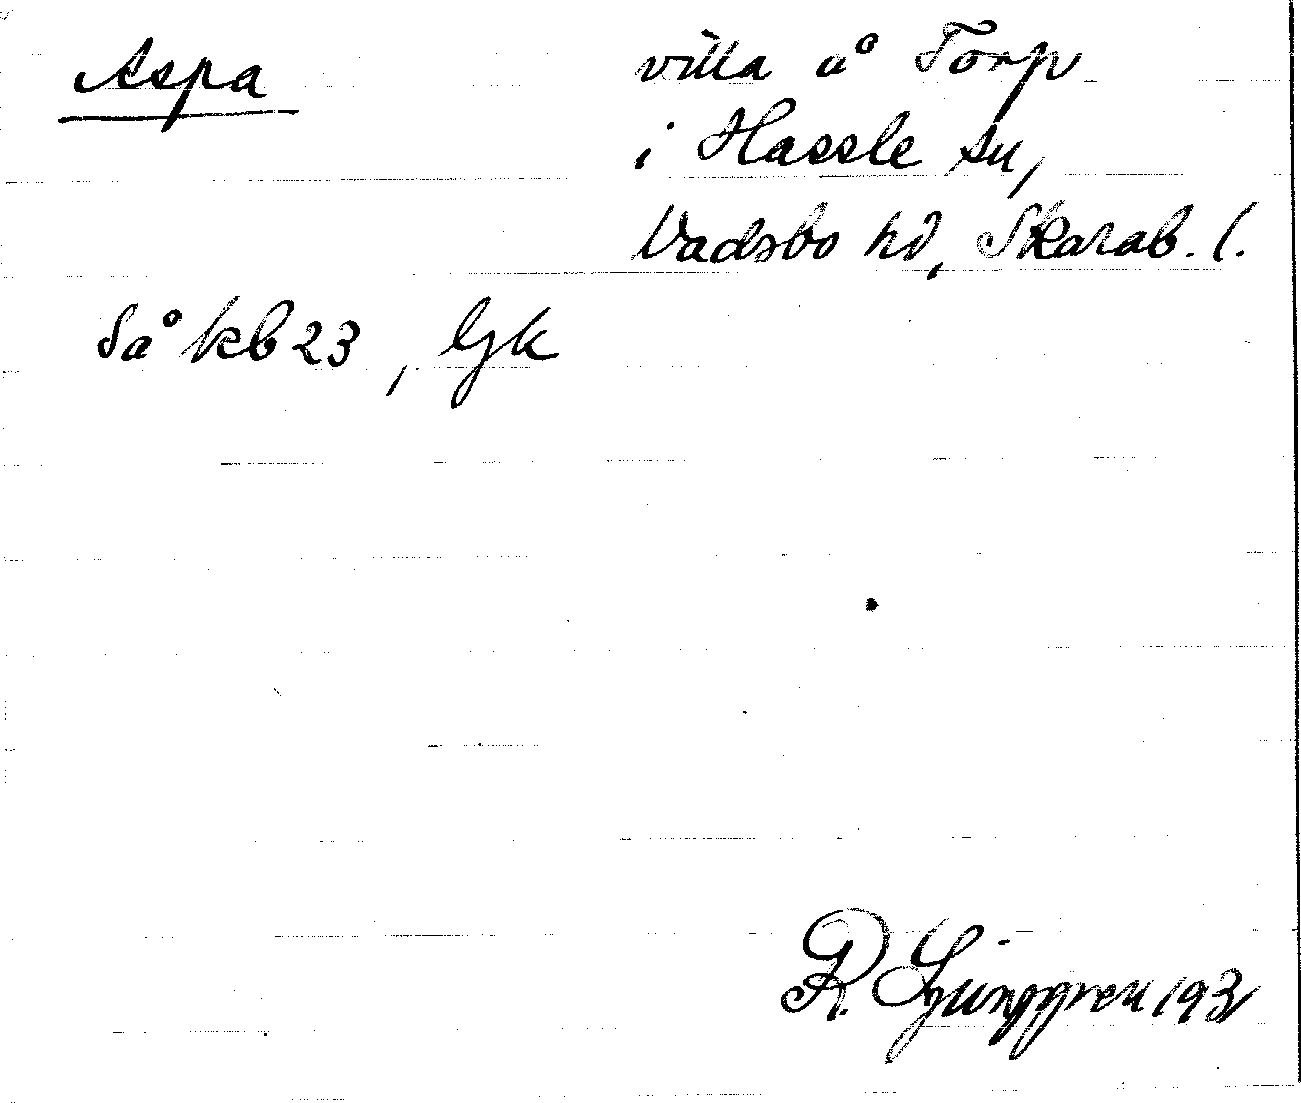 Aspa
villa å Torp
i Hassle sn,
Vadsbo hd, Skarab. l.
Så kb 23, Gk
R. Ljunggren 1931